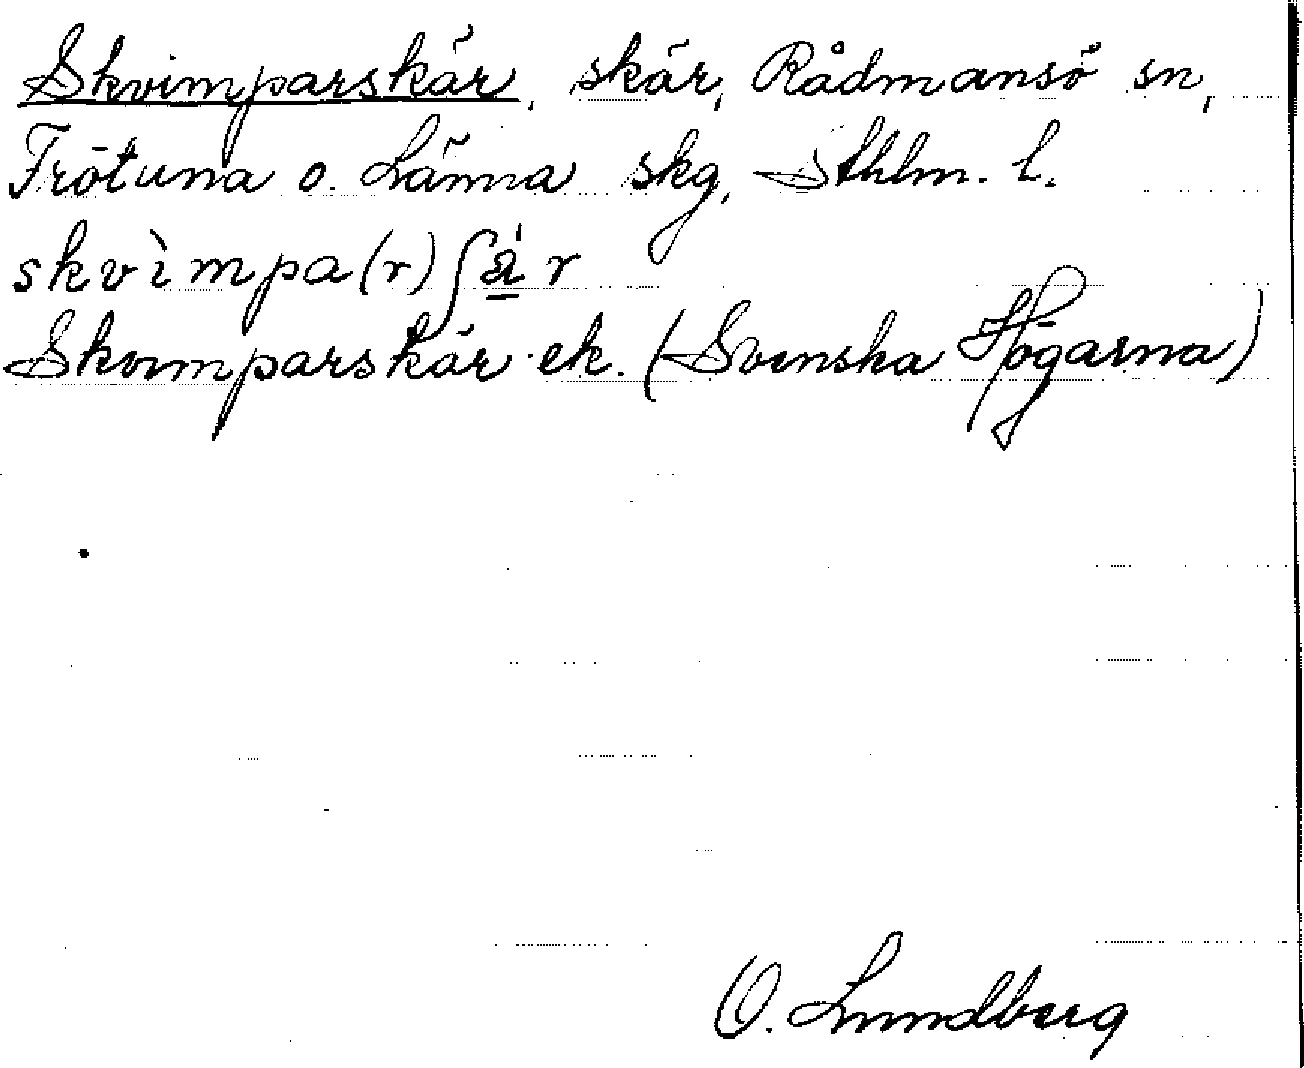 Skvimparskär, skär, Rådmansö sn,
Frötuna o. Länna skg, Sthlm. l.
skvìmpa(r)ʃä̲́r
Skvimparskär ek. (Svenska Högarna)
O. Lundberg